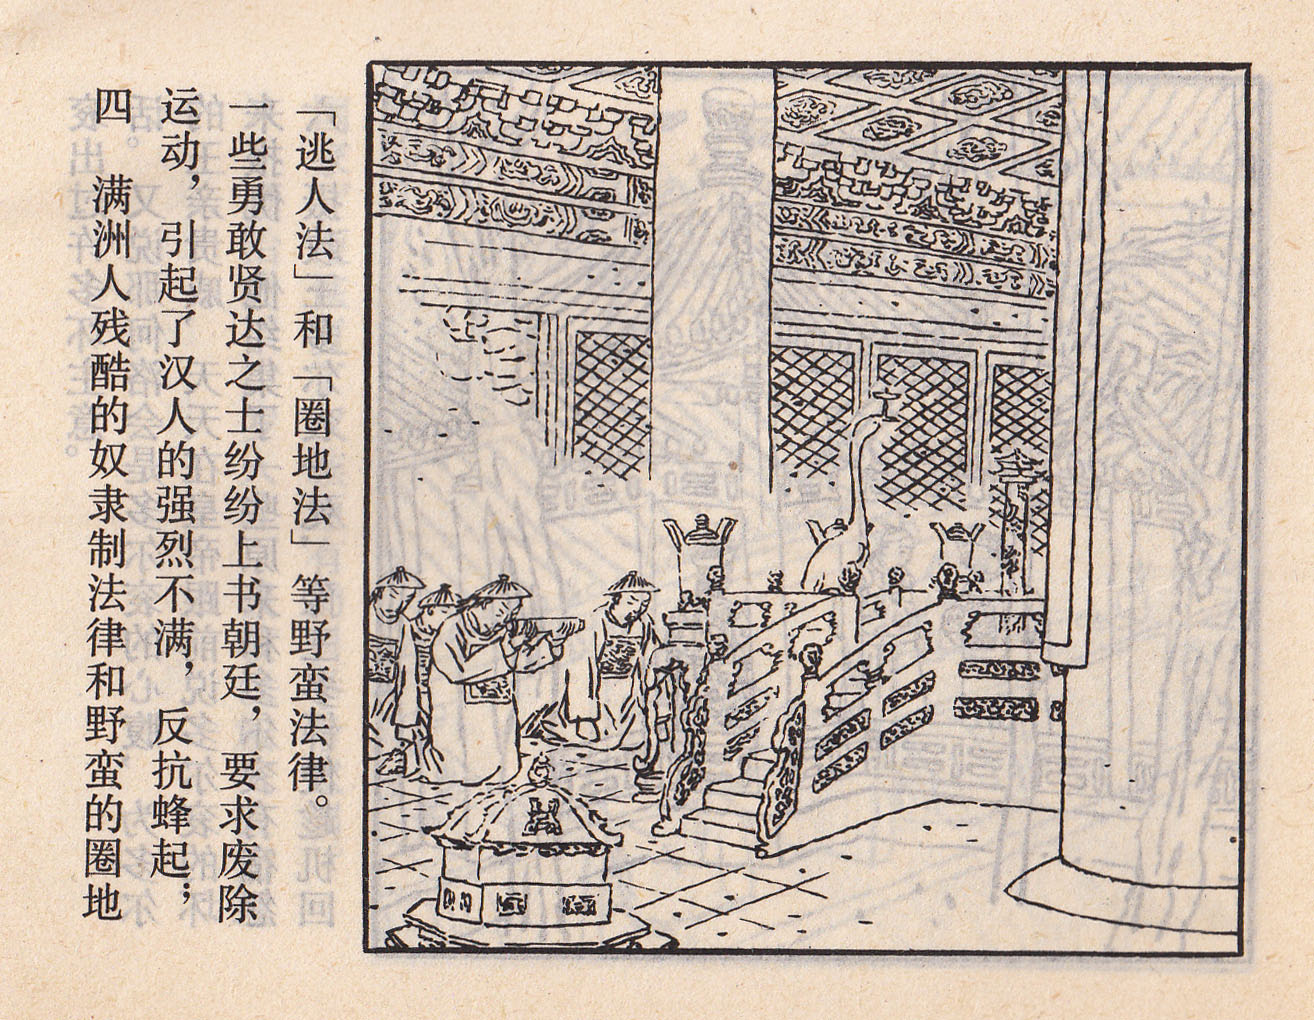 四 满洲人残酷的奴隶制法律和野蛮的圈地
运动，引起了汉人的强烈不满，反抗蜂起；
一些勇敢贤达之士纷纷上书朝廷，要求废除
「逃人法」和「圈地法」等野蛮法律。